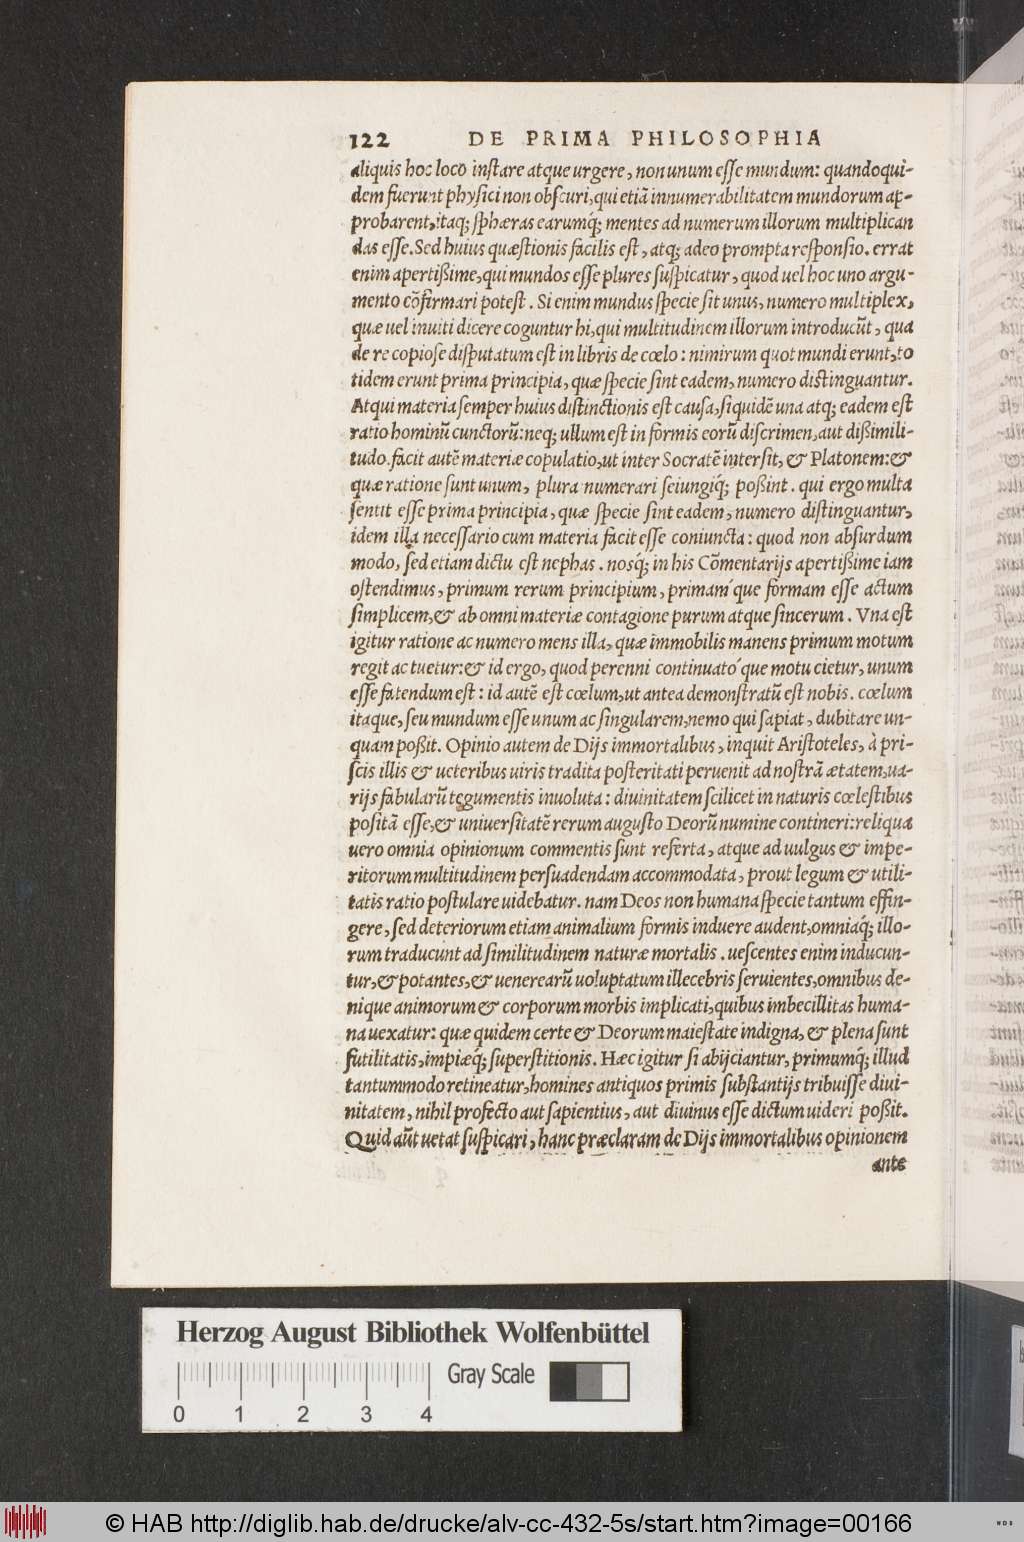 122 DE PRIMA PHILOSOPHIA
aliquis hoc loco instare atque urgere, non unum esse mundum: quandoqui-
dem fuerunt physici non obscuri, qui etiā innumerabilitatem mundorum ap-
probarent, itaq; sphæras earumq́; mentes ad numerum illorum multiplican
das esse. Sed huius quæstionis facilis est, atq; adeo prompta responsio. errat
enim apertißime, qui mundos esse plures suspicatur, quod uel hoc uno argu-
mento cōfirmari potest. Si enim mundus specie sit unus, numero multiplex,
quæ uel inuiti dicere coguntur hi, qui multitudinem illorum introducūt, qua
de re copiose disputatum est in libris de cœlo: nimirum quot mundi erunt, to
tidem erunt prima principia, quæ specie sint eadem, numero distinguantur.
Atqui materia semper huius distinctionis est causa, siquidē una atq; eadem est
ratio hominū cunctorū: neq; ullum est in formis eorū discrimen, aut dißimili-
tudo. facit autē materiæ copulatio, ut inter Socratē intersit, & Platonem: &
quæ ratione sunt unum, plura numerari seiungiq́; poßint. qui ergo multa
sentit esse prima principia, quæ specie sint eadem, numero distinguantur,
idem illa necessario cum materia facit esse coniuncta: quod non absurdum
modo, sed etiam dictu est nephas. nosq́; in his Cōmentarijs apertißime iam
ostendimus, primum rerum principium, primam´que formam esse actum
simplicem, & ab omni materiæ contagione purum atque sincerum. Vna est
igitur ratione ac numero mens illa, quæ immobilis manens primum motum
regit ac tuetur: & id ergo, quod perenni continuato´que motu cietur, unum
esse fatendum est: id autē est cœlum, ut antea demonstratū est nobis. cœlum
itaque, seu mundum esse unum ac singularem, nemo qui sapiat, dubitare un-
quam poßit. Opinio autem de Dijs immortalibus, inquit Aristoteles, à pri-
scis illis & ueteribus uiris tradita posteritati peruenit ad nostrā ætatem, ua-
rijs fabularū tegumentis inuoluta: diuinitatem scilicet in naturis cœlestibus
positā esse, & uniuersitatē rerum augusto Deorū numine contineri: reliqua
uero omnia opinionum commentis sunt referta, atque ad uulgus & impe-
ritorum multitudinem persuadendam accommodata, prout legum & utili-
tatis ratio postulare uidebatur. nam Deos non humana specie tantum effin-
gere, sed deteriorum etiam animalium formis induere audent, omniaq́; illo-
rum traducunt ad similitudinem naturæ mortalis. uescentes enim inducun-
tur, & potantes, & uenerearū uoluptatum illecebris seruientes, omnibus de-
nique animorum & corporum morbis implicati, quibus imbecillitas huma-
na uexatur: quæ quidem certe & Deorum maiestate indigna, & plena sunt
futilitatis, impiæq́; superstitionis. Hæc igitur si abijciantur, primumq́; illud
tantummodo retineatur, homines antiquos primis substantijs tribuisse diui-
nitatem, nihil profecto aut sapientius, aut diuinus esse dictum uideri poßit.
Quid aūt uetat suspicari, hanc præclaram de Dijs immortalibus opinionem
ante
Herzog August Bibliothek Wolfenbüttel
Gray Scale
0 1 2 3 4
© HAB http://diglib.hab.de/drucke/alv-cc-432-5s/start.htm?image=00166